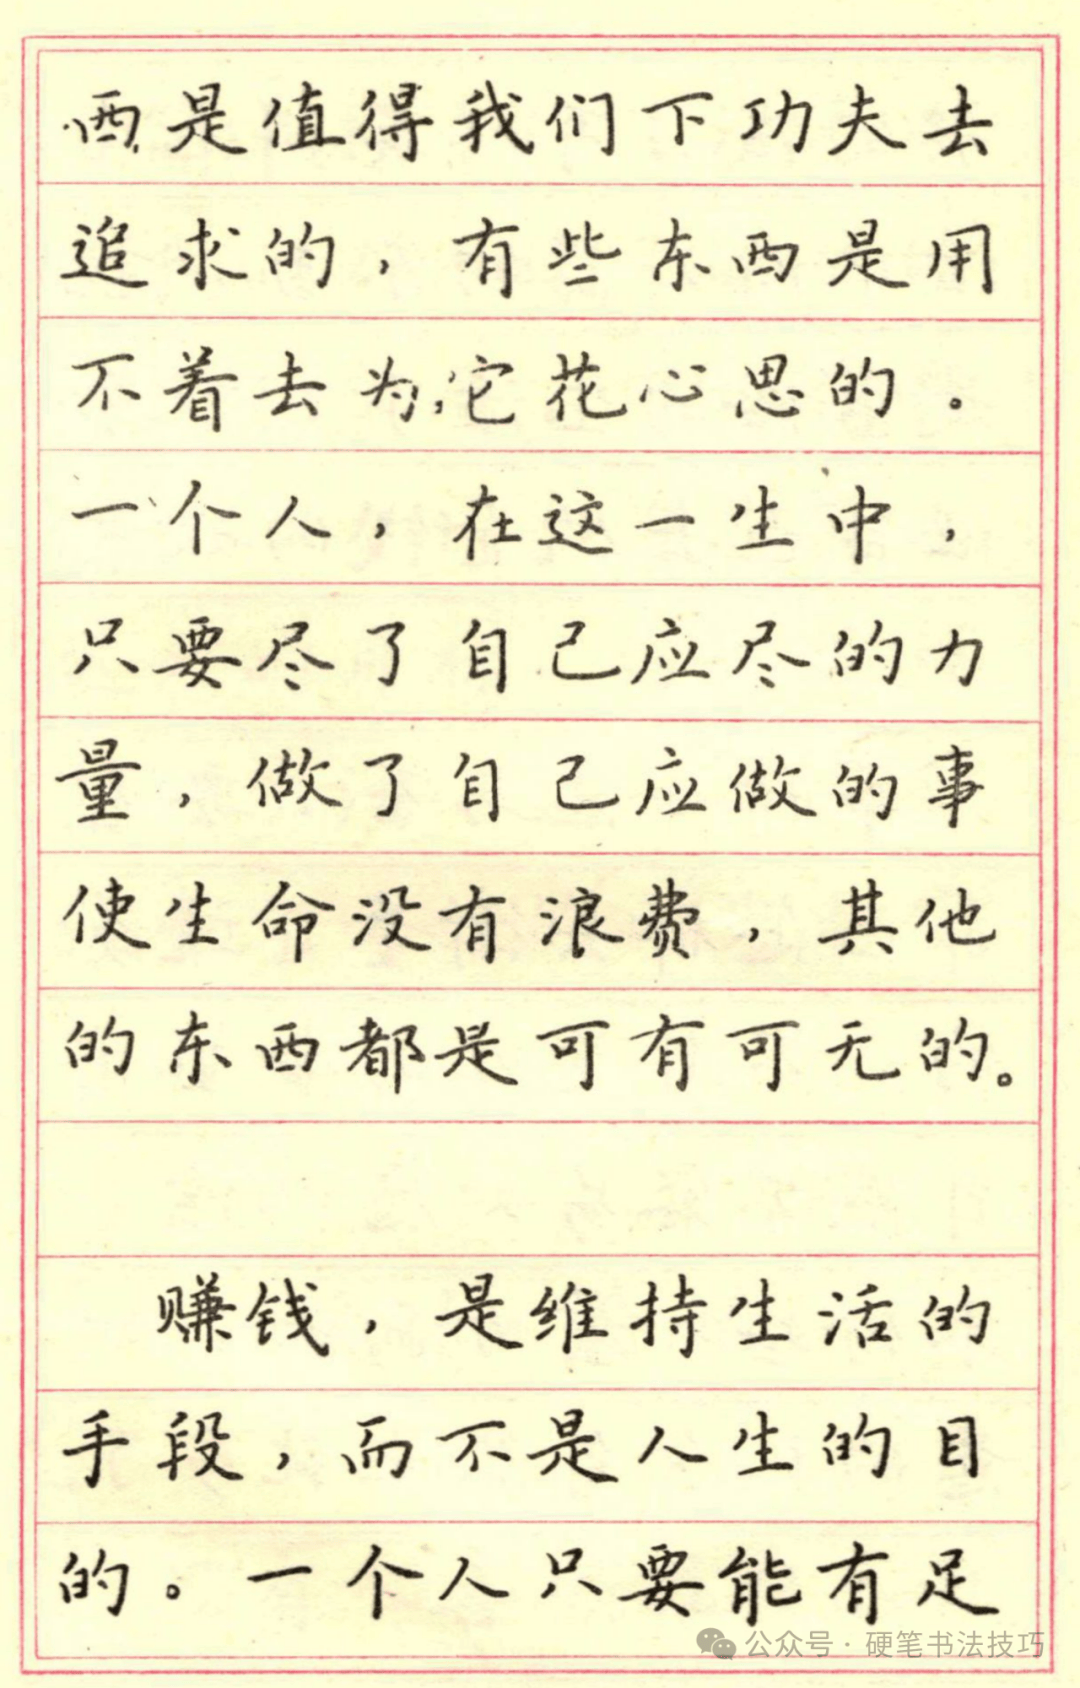 西是值得我们下功夫去
追求的，有些东西是用
不着去为它花心思的。
一个人，在这一生中，
只要尽了自己应尽的力
量，做了自己应做的事
使生命没有浪费，其他
的东西都是可有可无的。
赚钱，是维持生活的
手段，而不是人生的目
的。一个人只要能有足
公众号·硬笔书法技巧